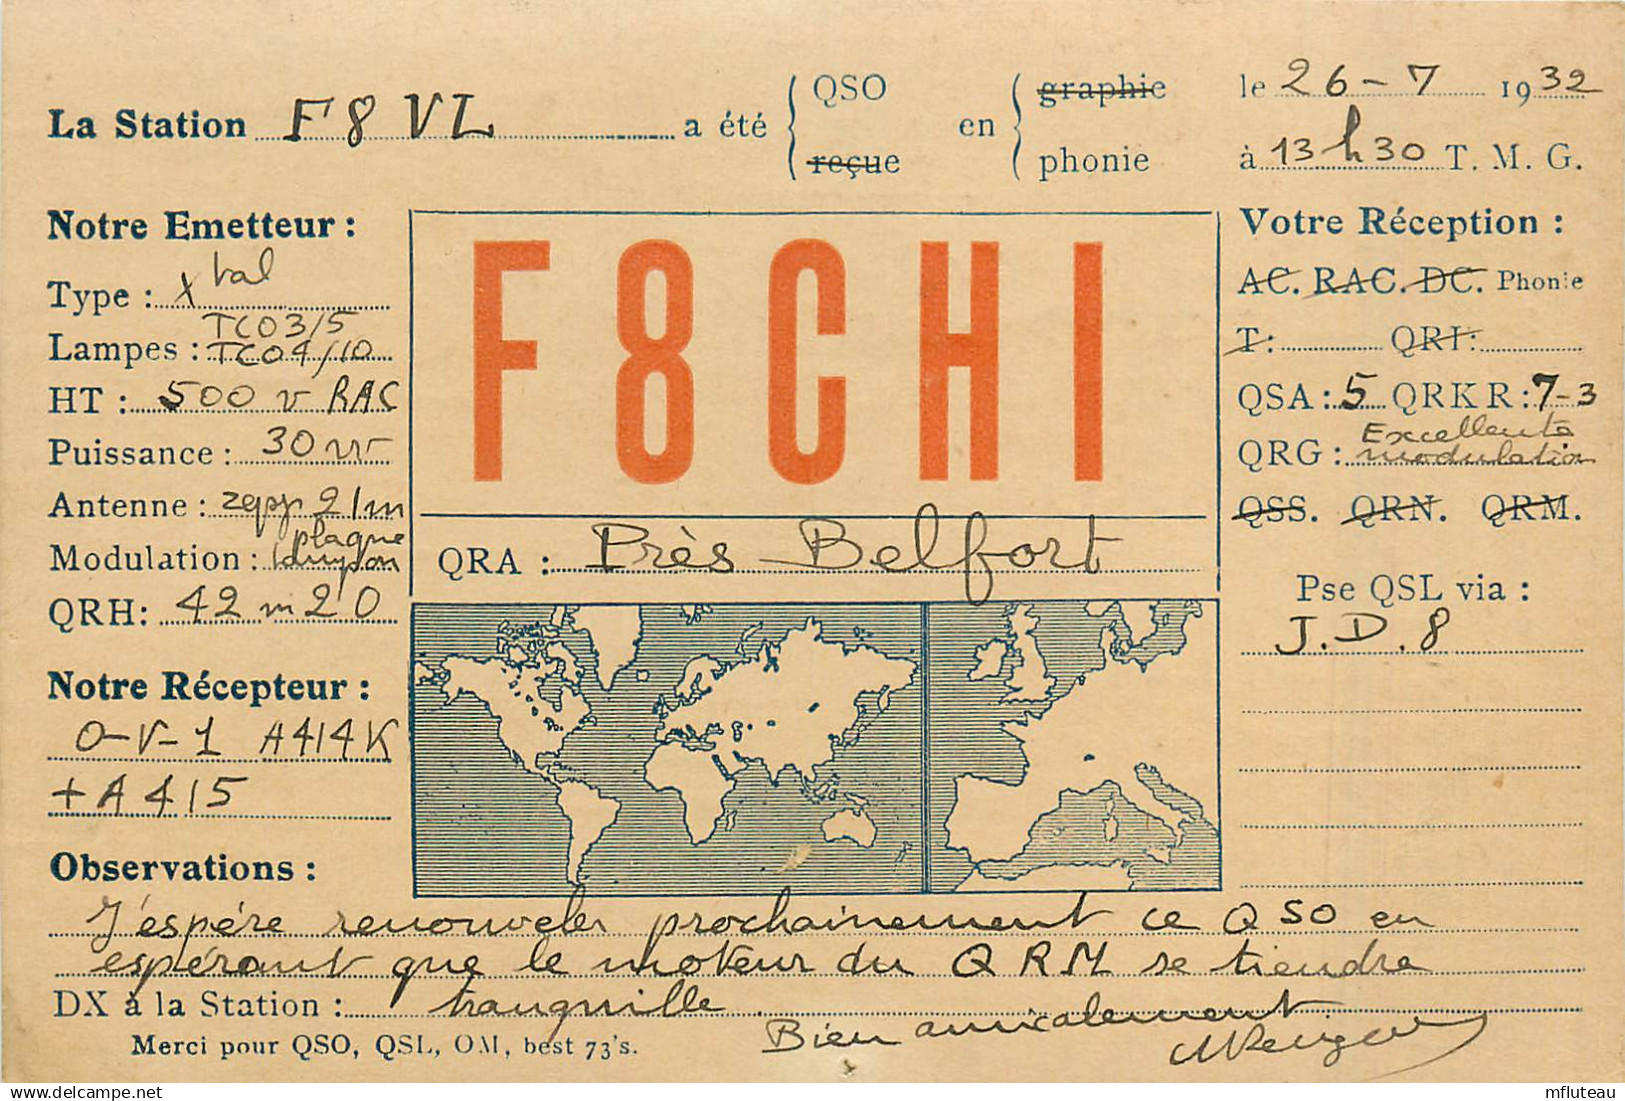 La Station F8VL a été { QSO en { graphie le 26-7 1932
reçue phonie à 13h30 T. M. G.
Notre Emetteur :
Type : Xtal
Lampes : TC03/5
TC04/10
HT : 500 v RAC
Puissance : 30 w
Antenne : zepp 21m
Modulation : plaque
QRH: 42 m 20
Notre Récepteur :
O-V-1 A414K
+ A415
F8CHI
QRA : Près Belfort
Votre Réception :
AC. RAC. DC. Phonie
T: QRI:
QSA : 5 QRK R : 7-3
QRG : Excellente
modulation
QSS. QRN. QRM.
Pse QSL via :
J.D.8
Observations :
J'espère renouveler prochainement ce QSO en
espérant que le moteur du QRM se tiendra
DX à la Station : tranquille.
Bien amicalement
Merci pour QSO, QSL, OM, best 73's.
delcampe.net
mfluteau